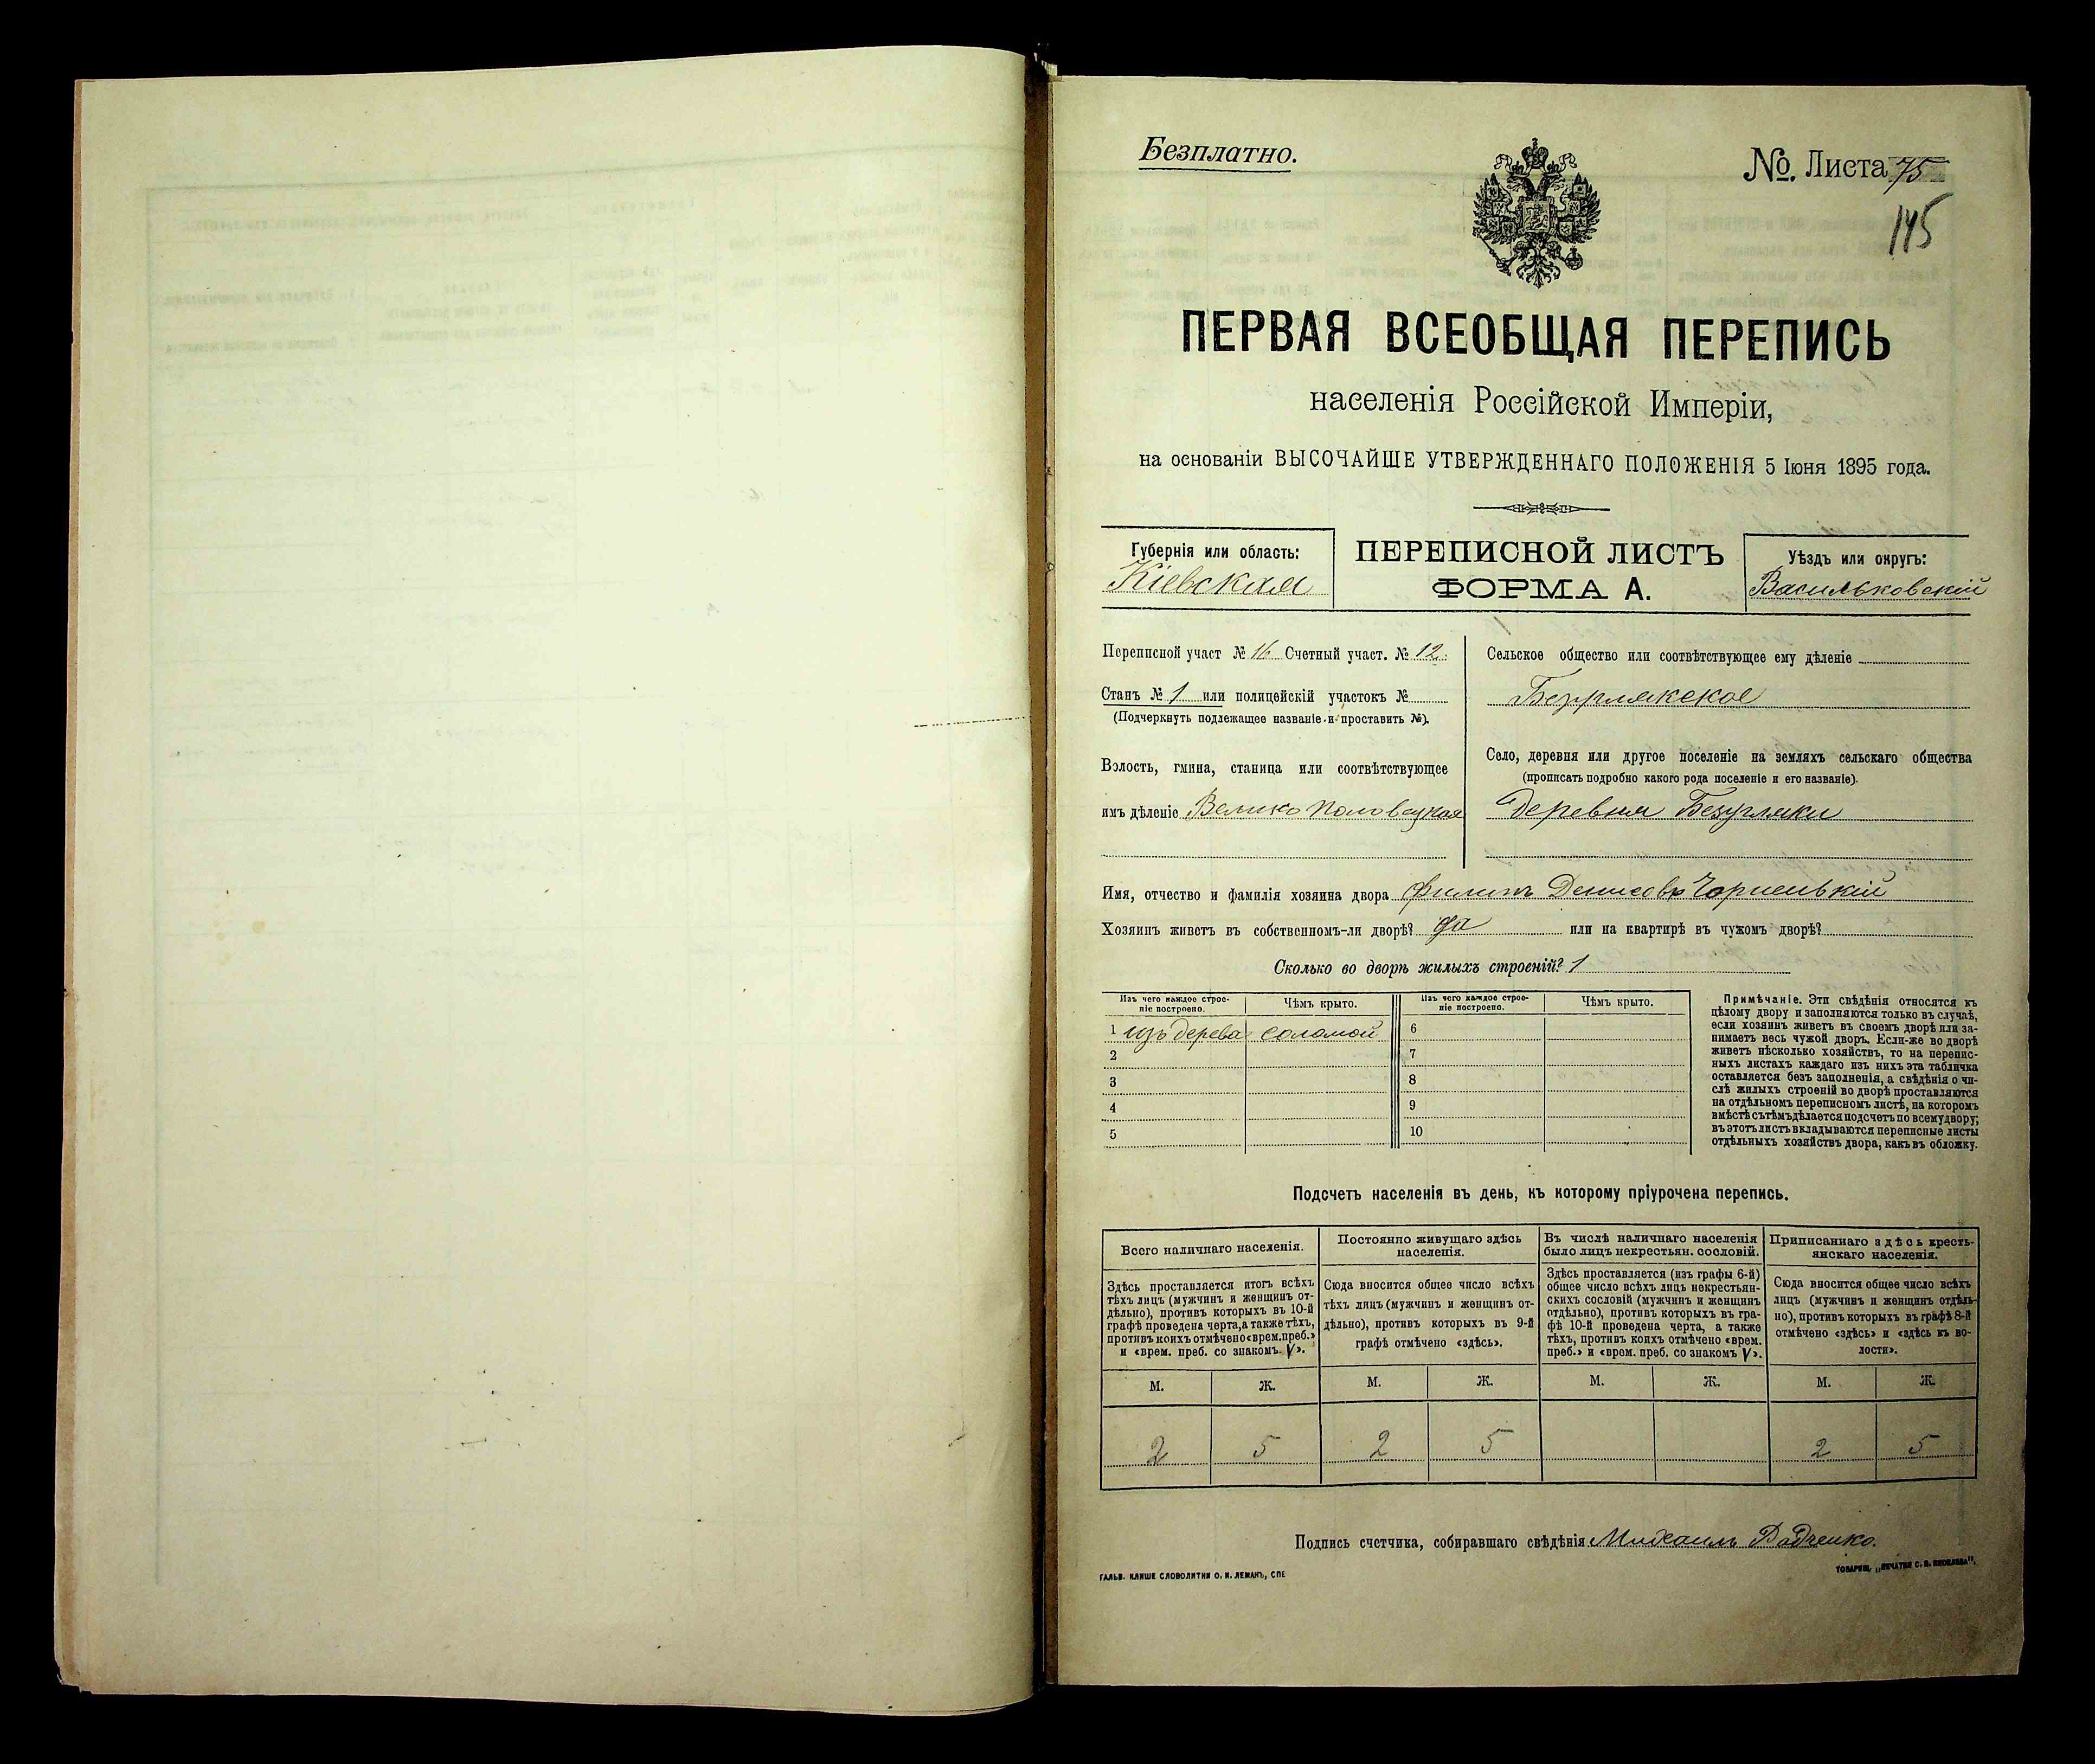 Безплатно.
№. Листа 75
145
ПЕРВАЯ ВСЕОБЩАЯ ПЕРЕПИСЬ
населенія Россійской Имперіи,
на основаніи ВЫСОЧАЙШЕ УТВЕРЖДЕННАГО ПОЛОЖЕНІЯ 5 Іюня 1895 года.
Губернія или область:
Кіевская
ПЕРЕПИСНОЙ ЛИСТЪ
ФОРМА А.
Уѣздъ или округъ:
Васильковскій
Переписной участ № 16 Счетный участ. № 12.
Станъ № 1 или полицейскій участокъ №
(Подчеркнуть подлежащее названіе и проставить №).
Волость, гмина, станица или соотвѣтствующее
имъ дѣленіе Велико Половецкая
Сельское общество или соотвѣтствующее ему дѣленіе
Село, деревня или другое поселеніе на земляхъ сельскаго общества
(прописать подробно какого рода поселеніе и его названіе).
Деревня Безугляки
Имя, отчество и фамилія хозяина двора Филипъ Денисовъ Чорненькій
Хозяинъ живетъ въ собственномъ-ли дворѣ? да или на квартирѣ въ чужомъ дворѣ?
Сколько во дворѣ жилыхъ строеній? 1
Изъ чего каждое строе-
ніе построено.
Чѣмъ крыто.
Изъ чего каждое строе-
ніе построено.
Чѣмъ крыто.
1 изъ дерева соломой 6
2 7
3 8
4 9
5 10
Примѣчаніе. Эти свѣдѣнія относятся къ
цѣлому двору и заполняются только въ случаѣ,
если хозяинъ живетъ въ своемъ дворѣ или за-
нимаетъ весь чужой дворъ. Если-же во дворѣ
живетъ нѣсколько хозяйствъ, то на перепис-
ныхъ листахъ каждаго изъ нихъ эта табличка
оставляется безъ заполненія, а свѣдѣнія о чи-
слѣ жилыхъ строеній во дворѣ проставляются
на отдѣльномъ переписномъ листѣ, на которомъ
вмѣстѣ съ тѣмъ дѣлается подсчетъ по всему двору;
въ этотъ листъ вкладываются переписные листы
отдѣльныхъ хозяйствъ двора, какъ въ обложку.
Подсчетъ населенія въ день, къ которому пріурочена перепись.
Всего наличнаго населенія.
Здѣсь проставляется итогъ всѣхъ
тѣхъ лицъ (мужчинъ и женщинъ от-
дѣльно), противъ которыхъ въ 10-й
графѣ проведена черта, а также тѣхъ,
противъ коихъ отмѣчено «врем. преб.»
и «врем. преб. со знакомъ V».
Постоянно живущаго здѣсь
населенія.
Сюда вносится общее число всѣхъ
тѣхъ лицъ (мужчинъ и женщинъ от-
дѣльно), противъ которыхъ въ 9-й
графѣ отмѣчено «здѣсь».
Въ числѣ наличнаго населенія
было лицъ некрестьян. сословій.
Здѣсь проставляется (изъ графы 6-й)
общее число всѣхъ лицъ некрестьян-
скихъ сословій (мужчинъ и женщинъ
отдѣльно), противъ которыхъ въ гра-
фѣ 10-й проведена черта, а также
тѣхъ, противъ коихъ отмѣчено «врем.
преб.» и «врем. преб. со знакомъ V».
Приписаннаго здѣсь кресть-
янскаго населенія.
Сюда вносится общее число всѣхъ
лицъ (мужчинъ и женщинъ отдѣль-
но), противъ которыхъ въ графѣ 8-й
отмѣчено «здѣсь» и «здѣсь къ во-
лости».
М. Ж. М. Ж. М. Ж. М. Ж.
2 5 2 5 2 5
Подпись счетчика, собиравшаго свѣдѣнія Михаилъ Радченко.
ГАЛЬВ. КЛИШЕ СЛОВОЛИТНИ О. И. ЛЕМАНЪ, СПБ
ТОВАРИЩ. „ПЕЧАТНЯ С. П. ЯКОВЛЕВА“.